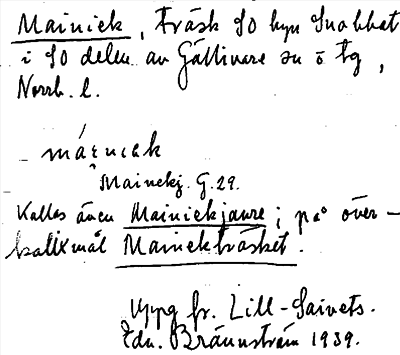 Mainiek, träsk SO hyn Snokket
i SO delen av Gällivare sn ö tg,
Norrb. l.
Mainekj. G. 29.
Kallas även Mainiekjaure; på över-
kalixmål Mainekträsket.
Uppg fr. Lill-Saivets.
Edv. Brännström 1939.